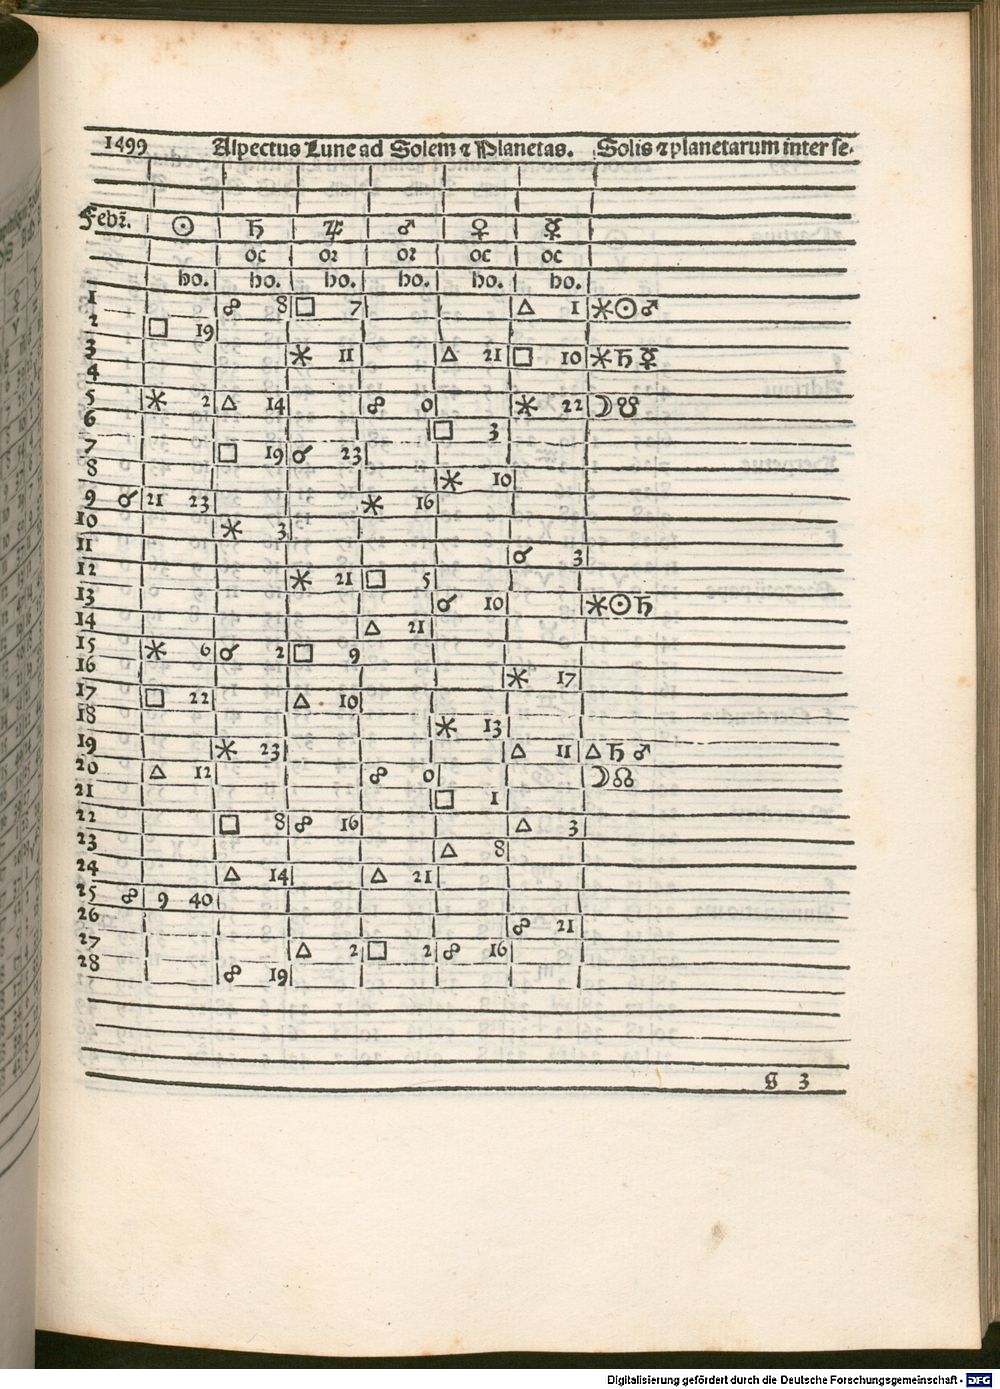 1499 Aspectus Lune ad Solem ⁊ Planetas. Solis ⁊ planetarum inter se.
Febr. ☉ ♄ ♃ ♂ ♀ ☿
oc or or oc oc
ho. ho. ho. ho. ho. ho.
1 ☍ 8 □ 7 △ 1 ⚹ ☉ ♂
2 □ 19
3 ⚹ 11 △ 21 □ 10 ⚹ ♄ ☿
4
5 ⚹ 2 △ 14 ☍ 0 ⚹ 22 ☽ ☋
6 □ 3
7 □ 19 ☌ 23
8 ⚹ 10
9 ☌ 21 23 ⚹ 16
10 ⚹ 3
11 ☌ 3
12 ⚹ 21 □ 5
13 ☌ 10 ⚹ ☉ ♄
14 △ 21
15 ⚹ 6 ☌ 2 □ 9
16 ⚹ 17
17 □ 22 △ 10
18 ⚹ 13
19 ⚹ 23 △ 11 △ ♄ ♂
20 △ 12 ☍ 0 ☽ ☊
21 □ 1
22 □ 8 ☍ 16 △ 3
23 △ 8
24 △ 14 △ 21
25 ☍ 9 40
26 ☍ 21
27 △ 2 □ 2 ☍ 16
28 ☍ 19
g 3
Digitalisierung gefördert durch die Deutsche Forschungsgemeinschaft - DFG